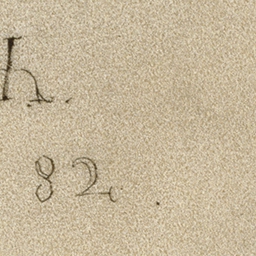 h.
82.